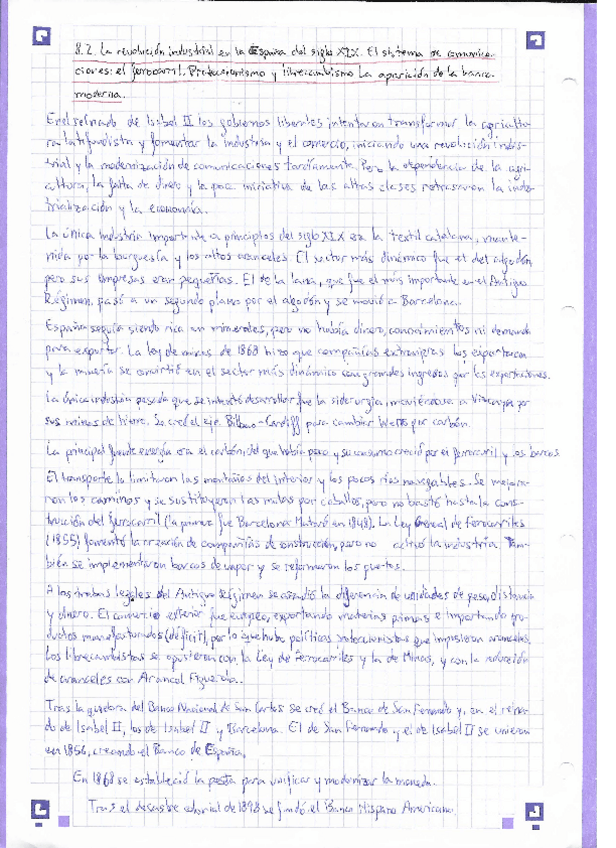 8.2. La revolución industrial en la España del siglo XIX. El sistema de comunica-
ciones: el ferrocarril. Proteccionismo y librecambismo La aparición de la banca
moderna.
En el reinado de Isabel II los gobiernos liberales intentaron transformar la agricultu-
ra latifundista y fomentar la industria y el comercio, iniciando una revolución indus-
trial y la modernización de comunicaciones tardíamente. Pero la dependencia de la agri-
cultura, la falta de dinero y la poca iniciativa de las altas clases retrasaron la indus-
trialización y la economía.
La única industria importante a principios del siglo XIX era la textil catalana, mante-
nida por la burguesía y los altos aranceles. El sector más dinámico fue el del algodón,
pero sus empresas eran pequeñas. El de la lana, que fue el más importante en el Antiguo
Régimen, pasó a un segundo plano por el algodón y se movió a Barcelona.
España seguía siendo rica en minerales, pero no había dinero, conocimientos ni demanda
para exportar. La ley de minas de 1868 hizo que compañías extranjeras las exportaran
y la minería se convirtió en el sector más dinámico con grandes ingresos por las exportaciones.
La única industria pesada que se intentó desarrollar fue la siderurgia, moviéndose a Vizcaya por
sus minas de hierro. Se creó el eje Bilbao-Cardiff para cambiar hierro por carbón.
La principal fuente energía era el carbón, del que había poco y su consumo creció por el ferrocarril y los barcos.
El transporte lo limitaron las montañas del interior y los pocos ríos navegables. Se mejora-
ron los caminos y se sustituyeron las mulas por caballos, pero no bastó hasta la cons-
trucción del ferrocarril (la primera fue Barcelona Mataró en 1848). La Ley General de Ferrocarriles
(1855) fomentó la creación de compañías de construcción, pero no la industria. Tam-
bién se implementaron barcos de vapor y se reformaron los puertos.
A las trabas legales del Antiguo Régimen se añadió la diferencia de unidades de peso, distancia
y dinero. El comercio exterior fue europeo, exportando materias primas e importando pro-
ductos manufacturados (déficit), por lo que hubo políticas proteccionistas que impusieron aranceles.
Los librecambistas se opusieron con la Ley de Ferrocarriles y la de Minas, y con la reducción
de aranceles con Arancel Figuerola.
Tras la quiebra del Banco Nacional de San Carlos se creó el Banco de San Fernando y, en el reina-
do de Isabel II, los de Isabel II y Barcelona. El de San Fernando y el de Isabel II se unieron
en 1856, creando el Banco de España.
En 1868 se estableció la peseta para unificar y modernizar la moneda.
Tras el desastre colonial de 1898 se fundó el Banco Hispano Americano.